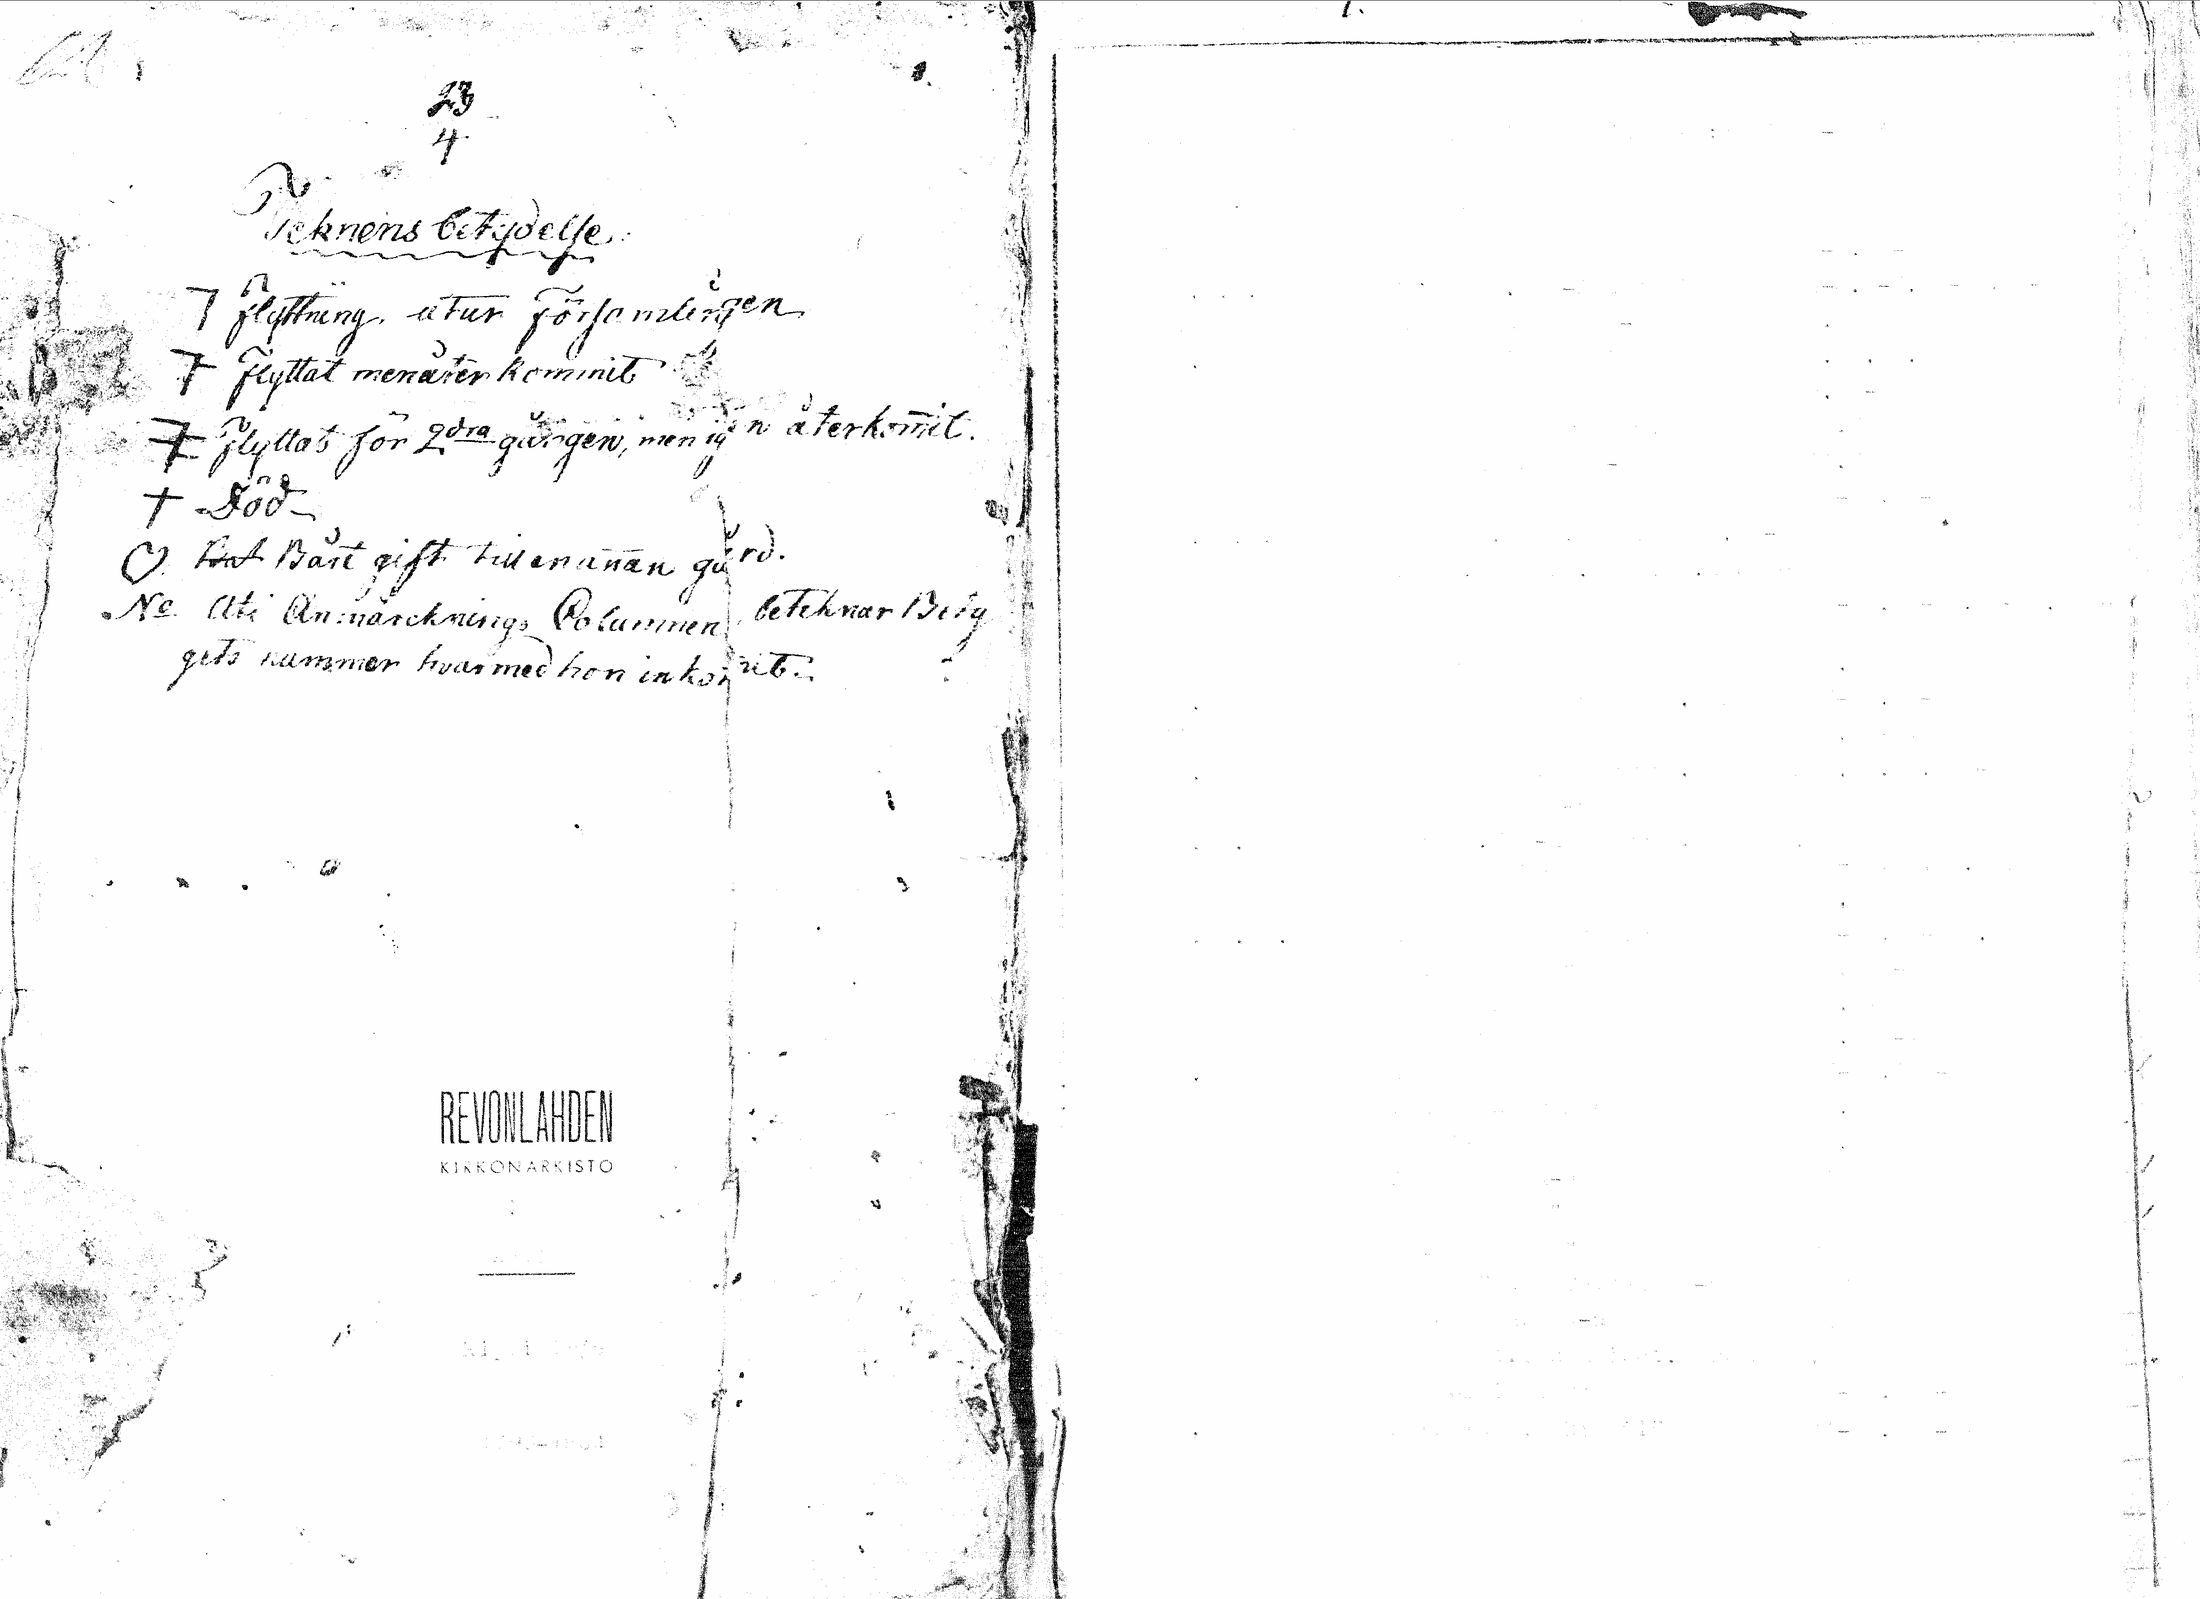 1.
23
4
Teknens betydelse
7 flyttning utur församlingen
7 flyttat men återkommit
7 flyttat för 2dra gången, men igen återkom̄it.
† Död
♡ Båt gift till en an̄an gård.
No Uti Anmärcknings Columnen betcknar Bety
gets nummer hvarmed hon inkom̄it.
REVONLAHDEN
KIRKONARKISTO